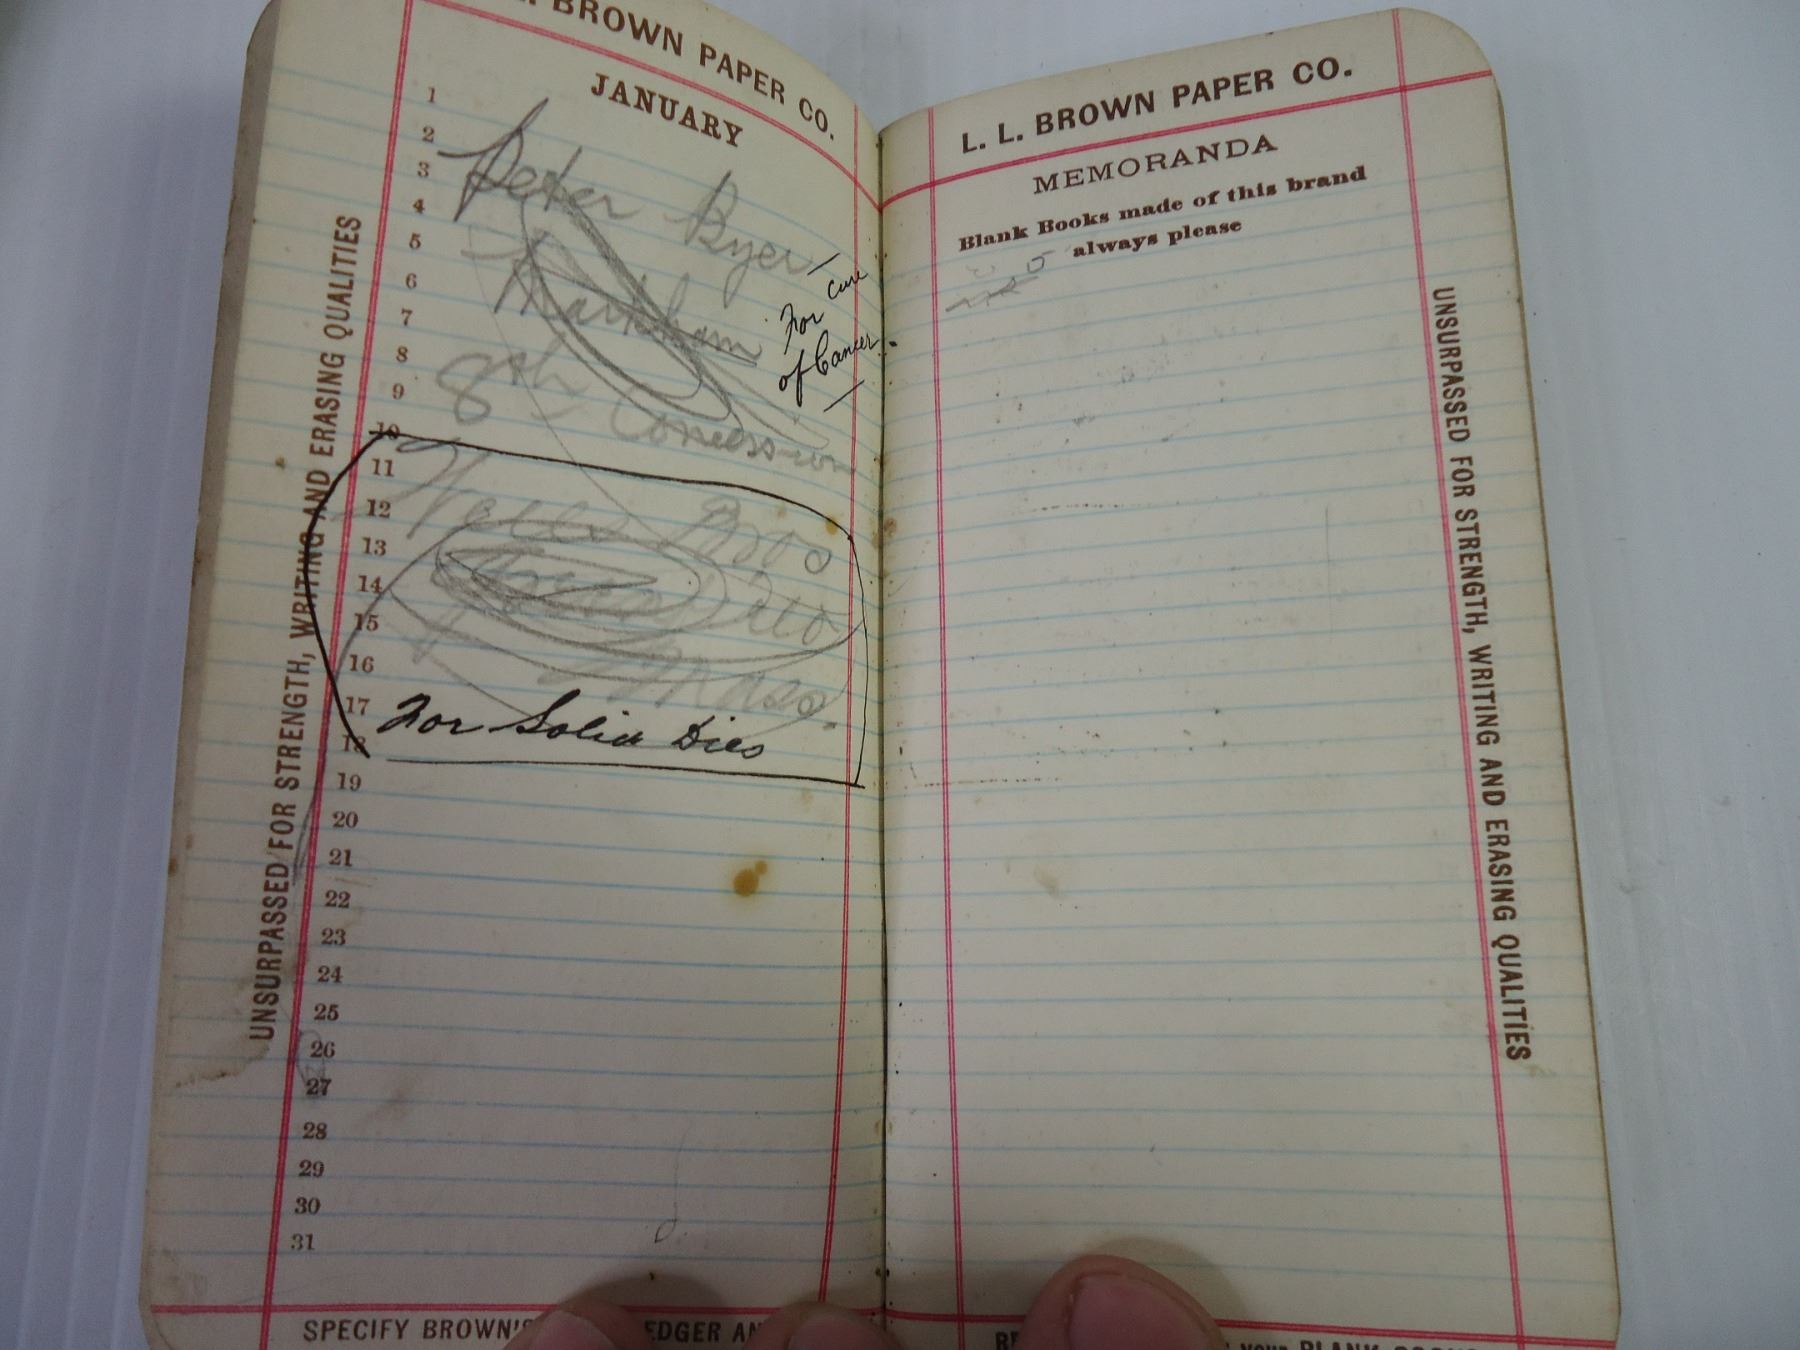 L. BROWN PAPER CO.
JANUARY
1
2
3
4
5
6
7
8
9
10
11
12
13
14
15
16
17
18
19
20
21
22
23
24
25
26
27
28
29
30
31
Peter Byer
Markham
8th Concession
For cure
of Cancer.
Bros
Mass.
For Solid Dies
UNSURPASSED FOR STRENGTH, WRITING AND ERASING QUALITIES
SPECIFY BROWN'S EDGER AN
L. L. BROWN PAPER CO.
MEMORANDA
Blank Books made of this brand
always please
UNSURPASSED FOR STRENGTH, WRITING AND ERASING QUALITIES
YOUR BLANK BOOKS